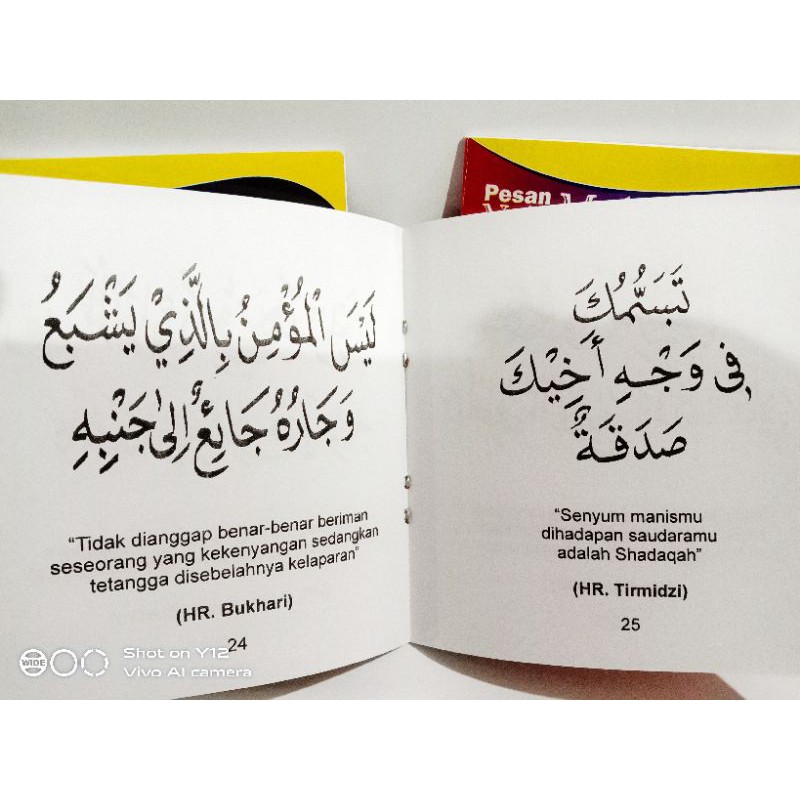 Pesan
لَيْسَ الْمُؤْمِنُ بِالَّذِيْ يَشْبَعُ
وَجَارُهُ جَائِعٌ إِلٰى جَنْبِهِ
“Tidak dianggap benar-benar beriman
seseorang yang kekenyangan sedangkan
tetangga disebelahnya kelaparan”
(HR. Bukhari)
24
تَبَسُّمُكَ
فِى وَجْهِ أَخِيْكَ
صَدَقَةٌ
“Senyum manismu
dihadapan saudaramu
adalah Shadaqah”
(HR. Tirmidzi)
25
WIDE
Shot on Y12
Vivo AI camera